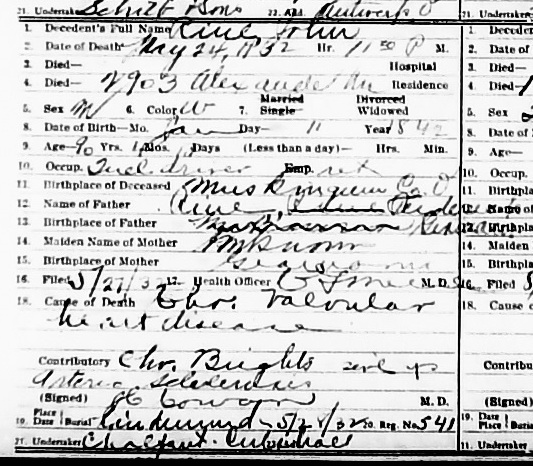 21. Undertaker Schilt & Sons 22. Add. Antwerp O
1. Decedent's Full Name Rine, John
2. Date of Death May 24, 1932 Hr. 11 30 P M.
3. Died— Hospital
4. Died— 2903 Alexander Residence
5. Sex M 6. Color W 7. Married Single Divorced Widowed
8. Date of Birth—Mo. Jan Day— 11 Year 1842
9. Age— 90 Yrs. Mos. Days (Less than a day)— Hrs. Min.
10. Occup. driver Emp. ret
11. Birthplace of Deceased Muskingum Co. O.
12. Name of Father Rine,
13. Birthplace of Father
14. Maiden Name of Mother Unknown
15. Birthplace of Mother
16. Filed 5/27/32 17. Health Officer M. D.
18. Cause of Death Chr. Valvular
heart disease
Contributory Chr. Brights
Arterio Sclerosis
(Signed) Cowan M. D.
19. Place Date Burial 5/2 /32 20. Reg. No. 541
21. Undertaker Chalfant.
21. Undertaker
1. Decedent
2. Date of
3. Died—
4. Died—
5. Sex
8. Date of
9. Age—
10. Occup.
11. Birthpla
12. Name of
13. Birthpla
14. Maiden
15. Birthpla
16. Filed
18. Cause o
Contribu
(Signed)
19. Place Date
11. Undertaker